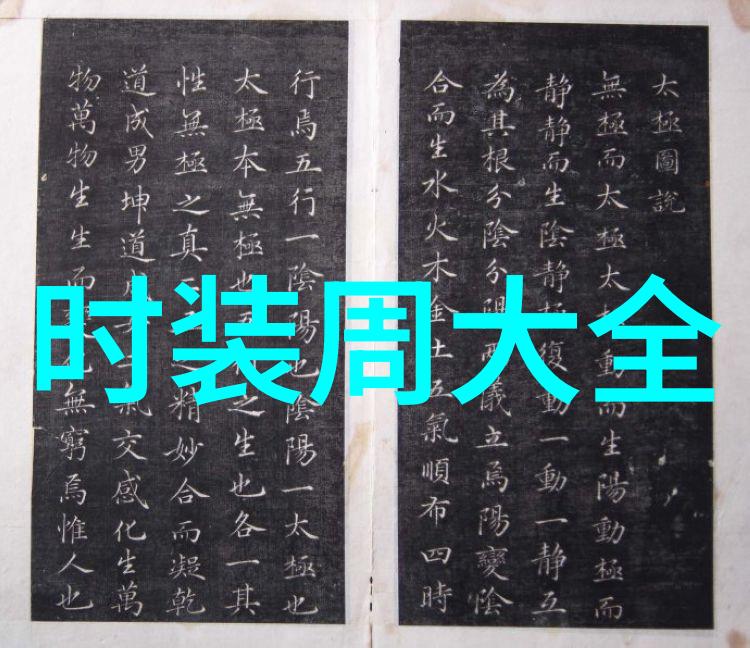 太極圖說
無極而太極太極動而生陽動極而
静静而生陰静極復動一動一静互
為其根分陰分陽兩儀立焉陽變陰
合而生水火木金土五氣順布四時
行焉五行一陰陽也陰陽一太極也
太極本無極也五之生也各一其
性無極之真之精妙合而凝乾
道成男坤道成氣交感化生萬
物萬物生生而變無窮焉惟人也
时装周大全